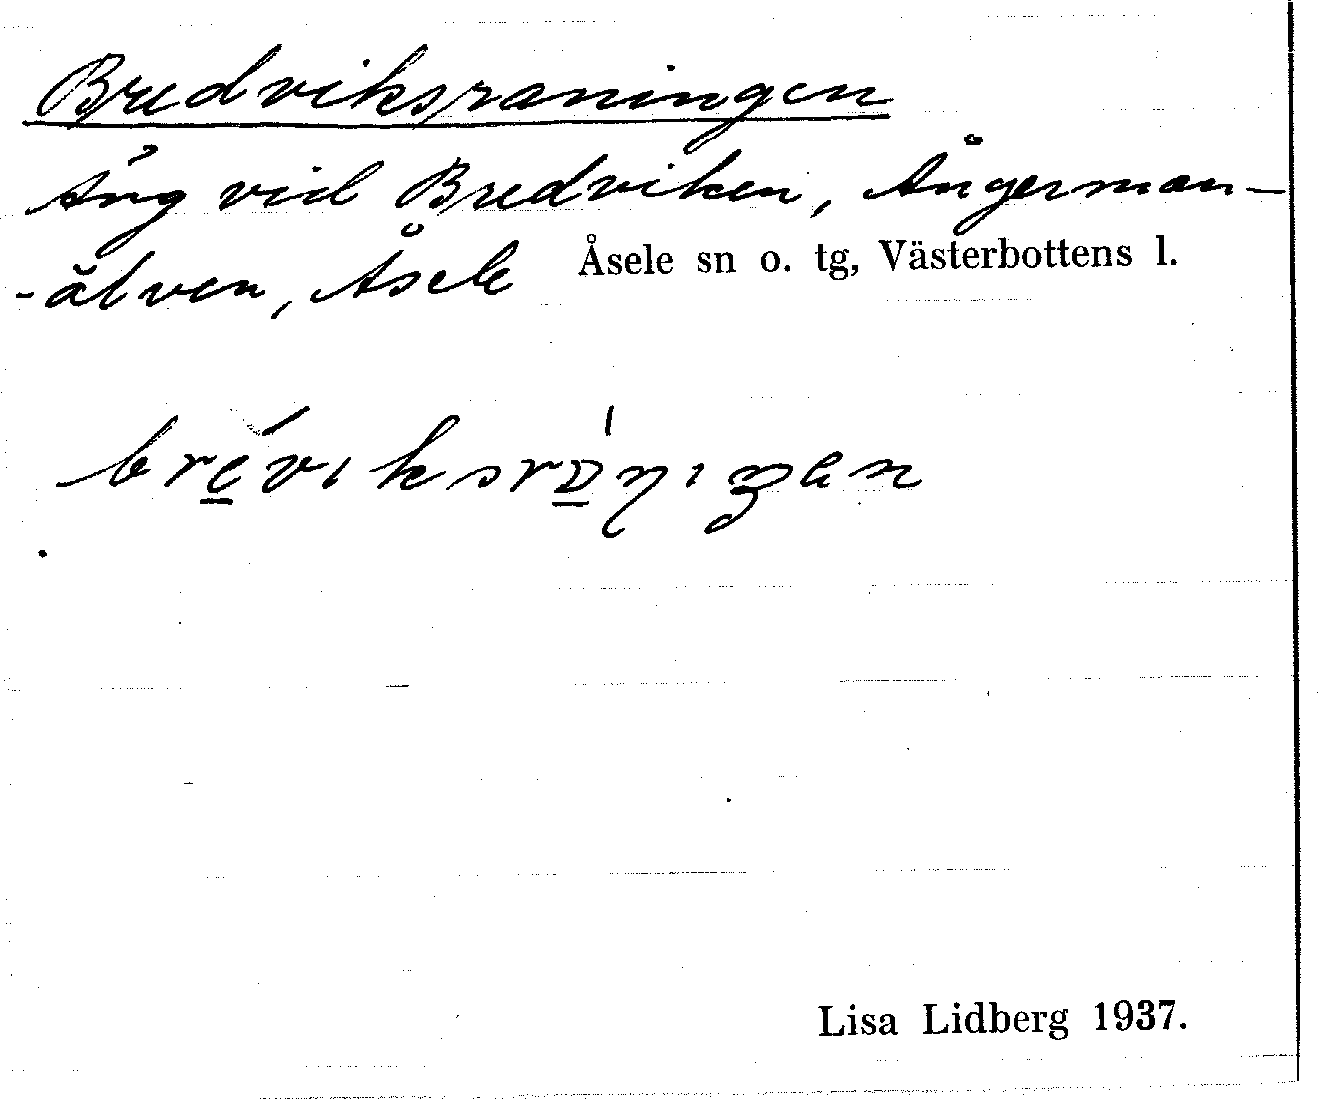 Bredviksraningen
Äng vid Bredviken, Ångerman-
-älven, Åsele Åsele sn o. tg, Västerbottens l.
Lisa Lidberg 1937.